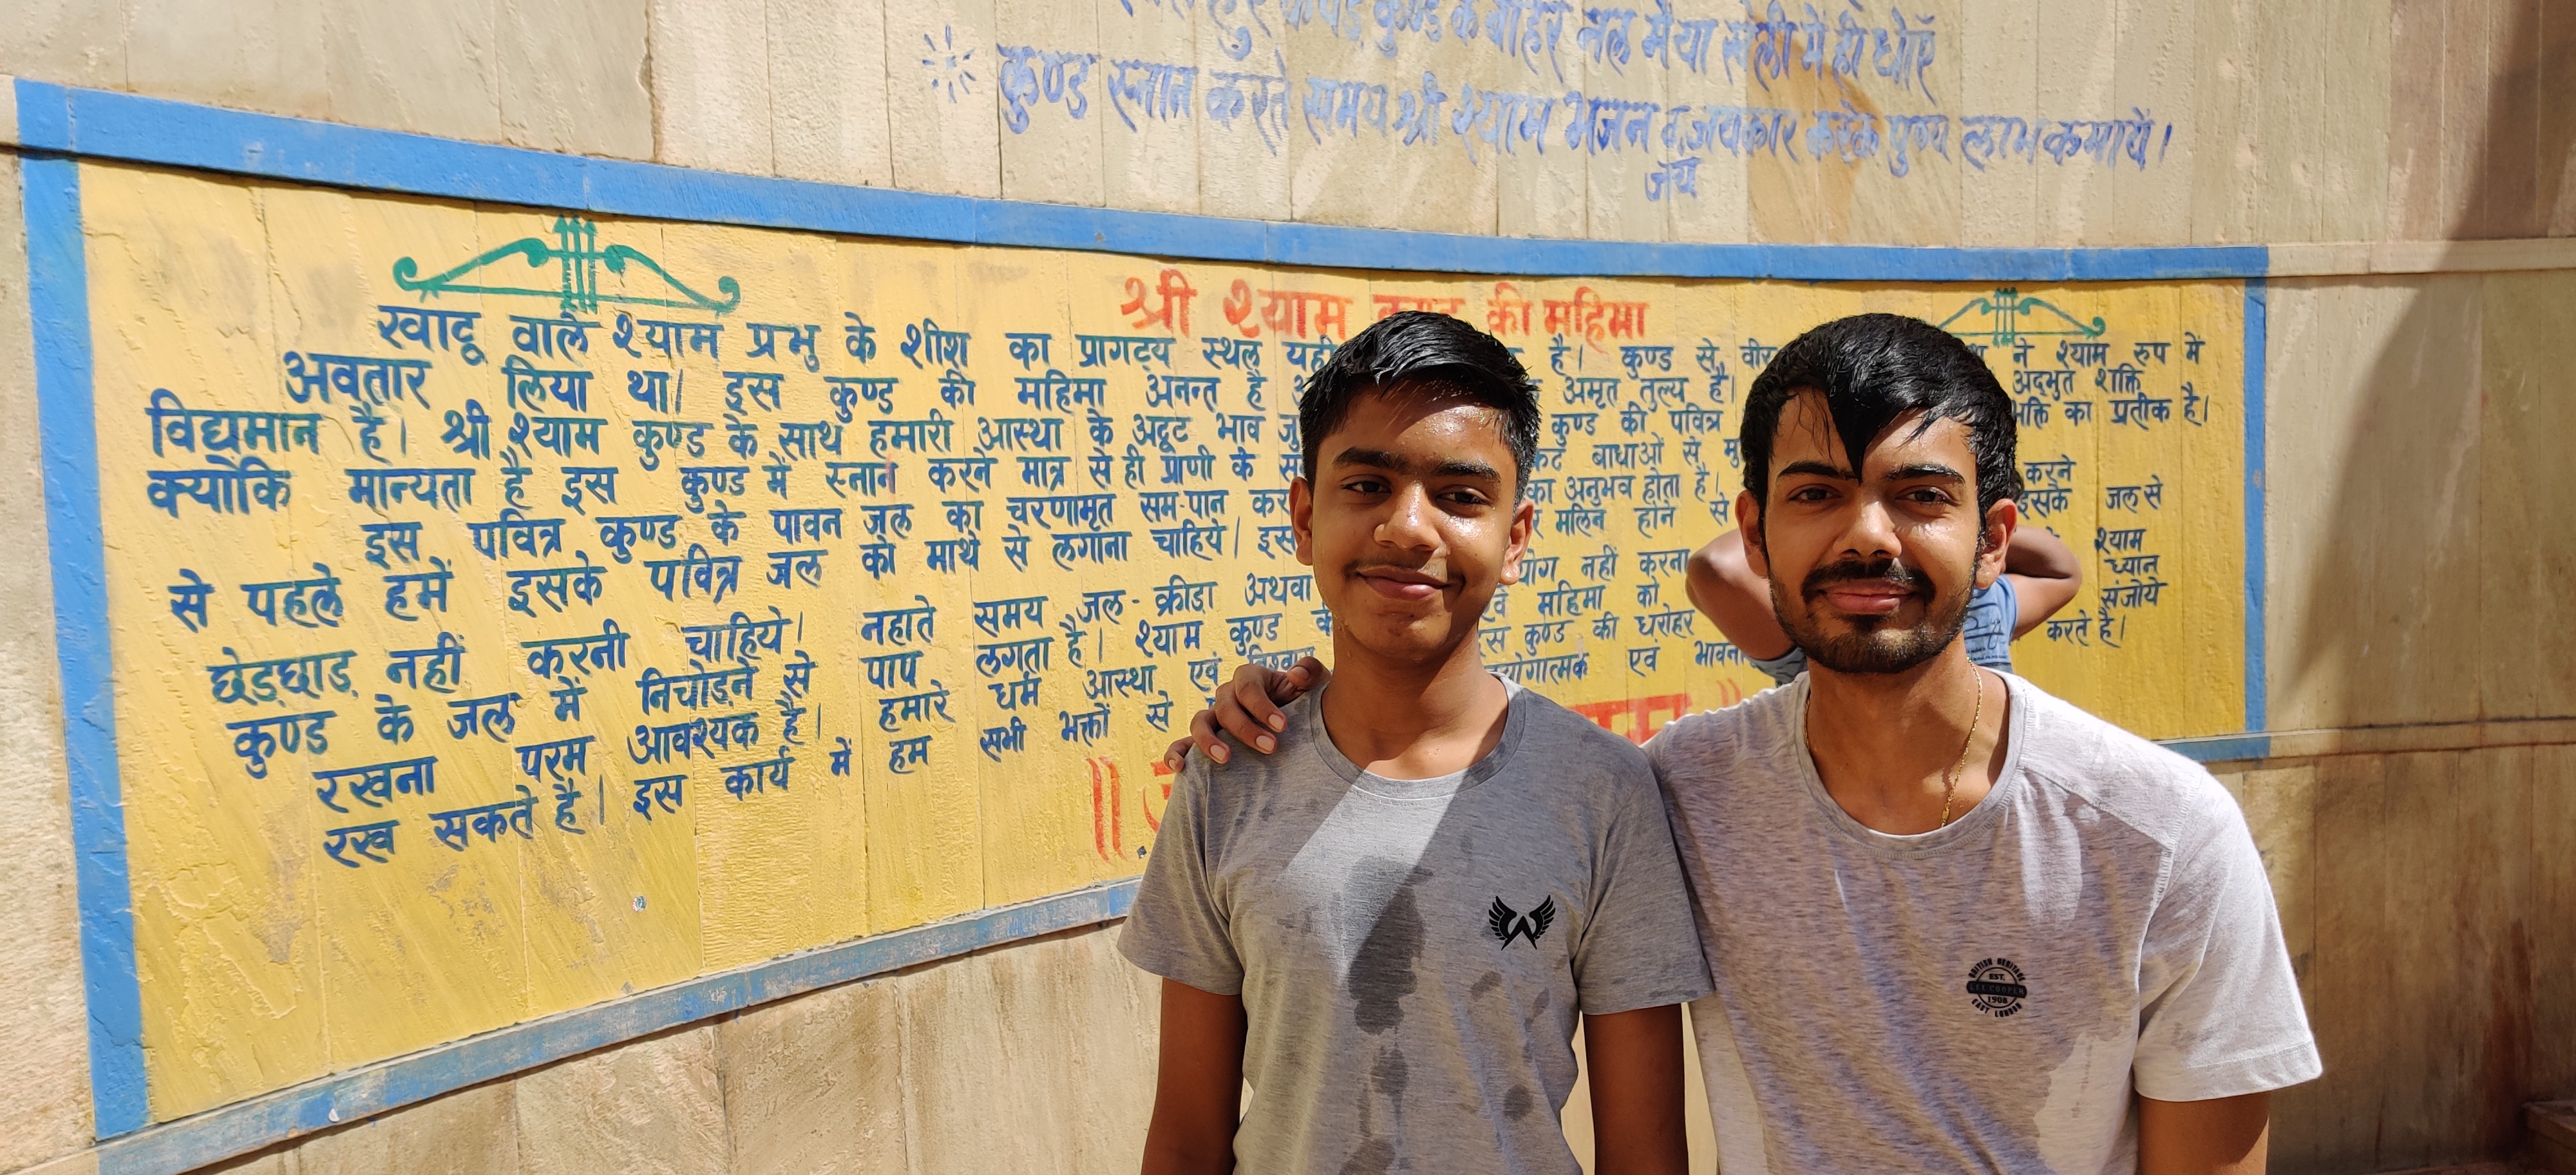 कुण्ड के बाहर नल में या खेली में ही धोएँ
कुण्ड स्नान करते समय श्री श्याम भजन व जयकार करके पुण्य लाभ कमायें।
जय
श्री श्याम की महिमा
खाटू वाले श्याम प्रभु के शीश का प्रागट्य स्थल यही है। कुण्ड से वीर ने श्याम रुप में
अवतार लिया था। इस कुण्ड की महिमा अनन्त है अमृत तुल्य है। अदभुत शक्ति
विद्यमान है। श्री श्याम कुण्ड के साथ हमारी आस्था के अटूट भाव कुण्ड की पवित्र भक्ति का प्रतीक है।
क्योंकि मान्यता है इस कुण्ड में स्नान करने मात्र से ही प्राणी के बाधाओं से करने
इस पवित्र कुण्ड के पावन जल का चरणामृत सम-पान का अनुभव होता है। इसके जल से
से पहले हमें इसके पवित्र जल को माथे से लगाना चाहिये। इस मलिन होने से श्याम
छेड़छाड़ नहीं करनी चाहिये। नहाते समय जल-क्रीडा अथवा नहीं करना ध्यान
कुण्ड के जल में निचोड़ने से पाप लगता है। श्याम कुण्ड के महिमा को संजोये
रखना परम आवश्यक है। हमारे धर्म आस्था एवं विश्वास कुण्ड की धरोहर करते है।
रख सकते है। इस कार्य में हम सभी भक्तों से एवं
W
BRITISH HERITAGE
EST.
LEE COOPER
1908
EAST LONDON